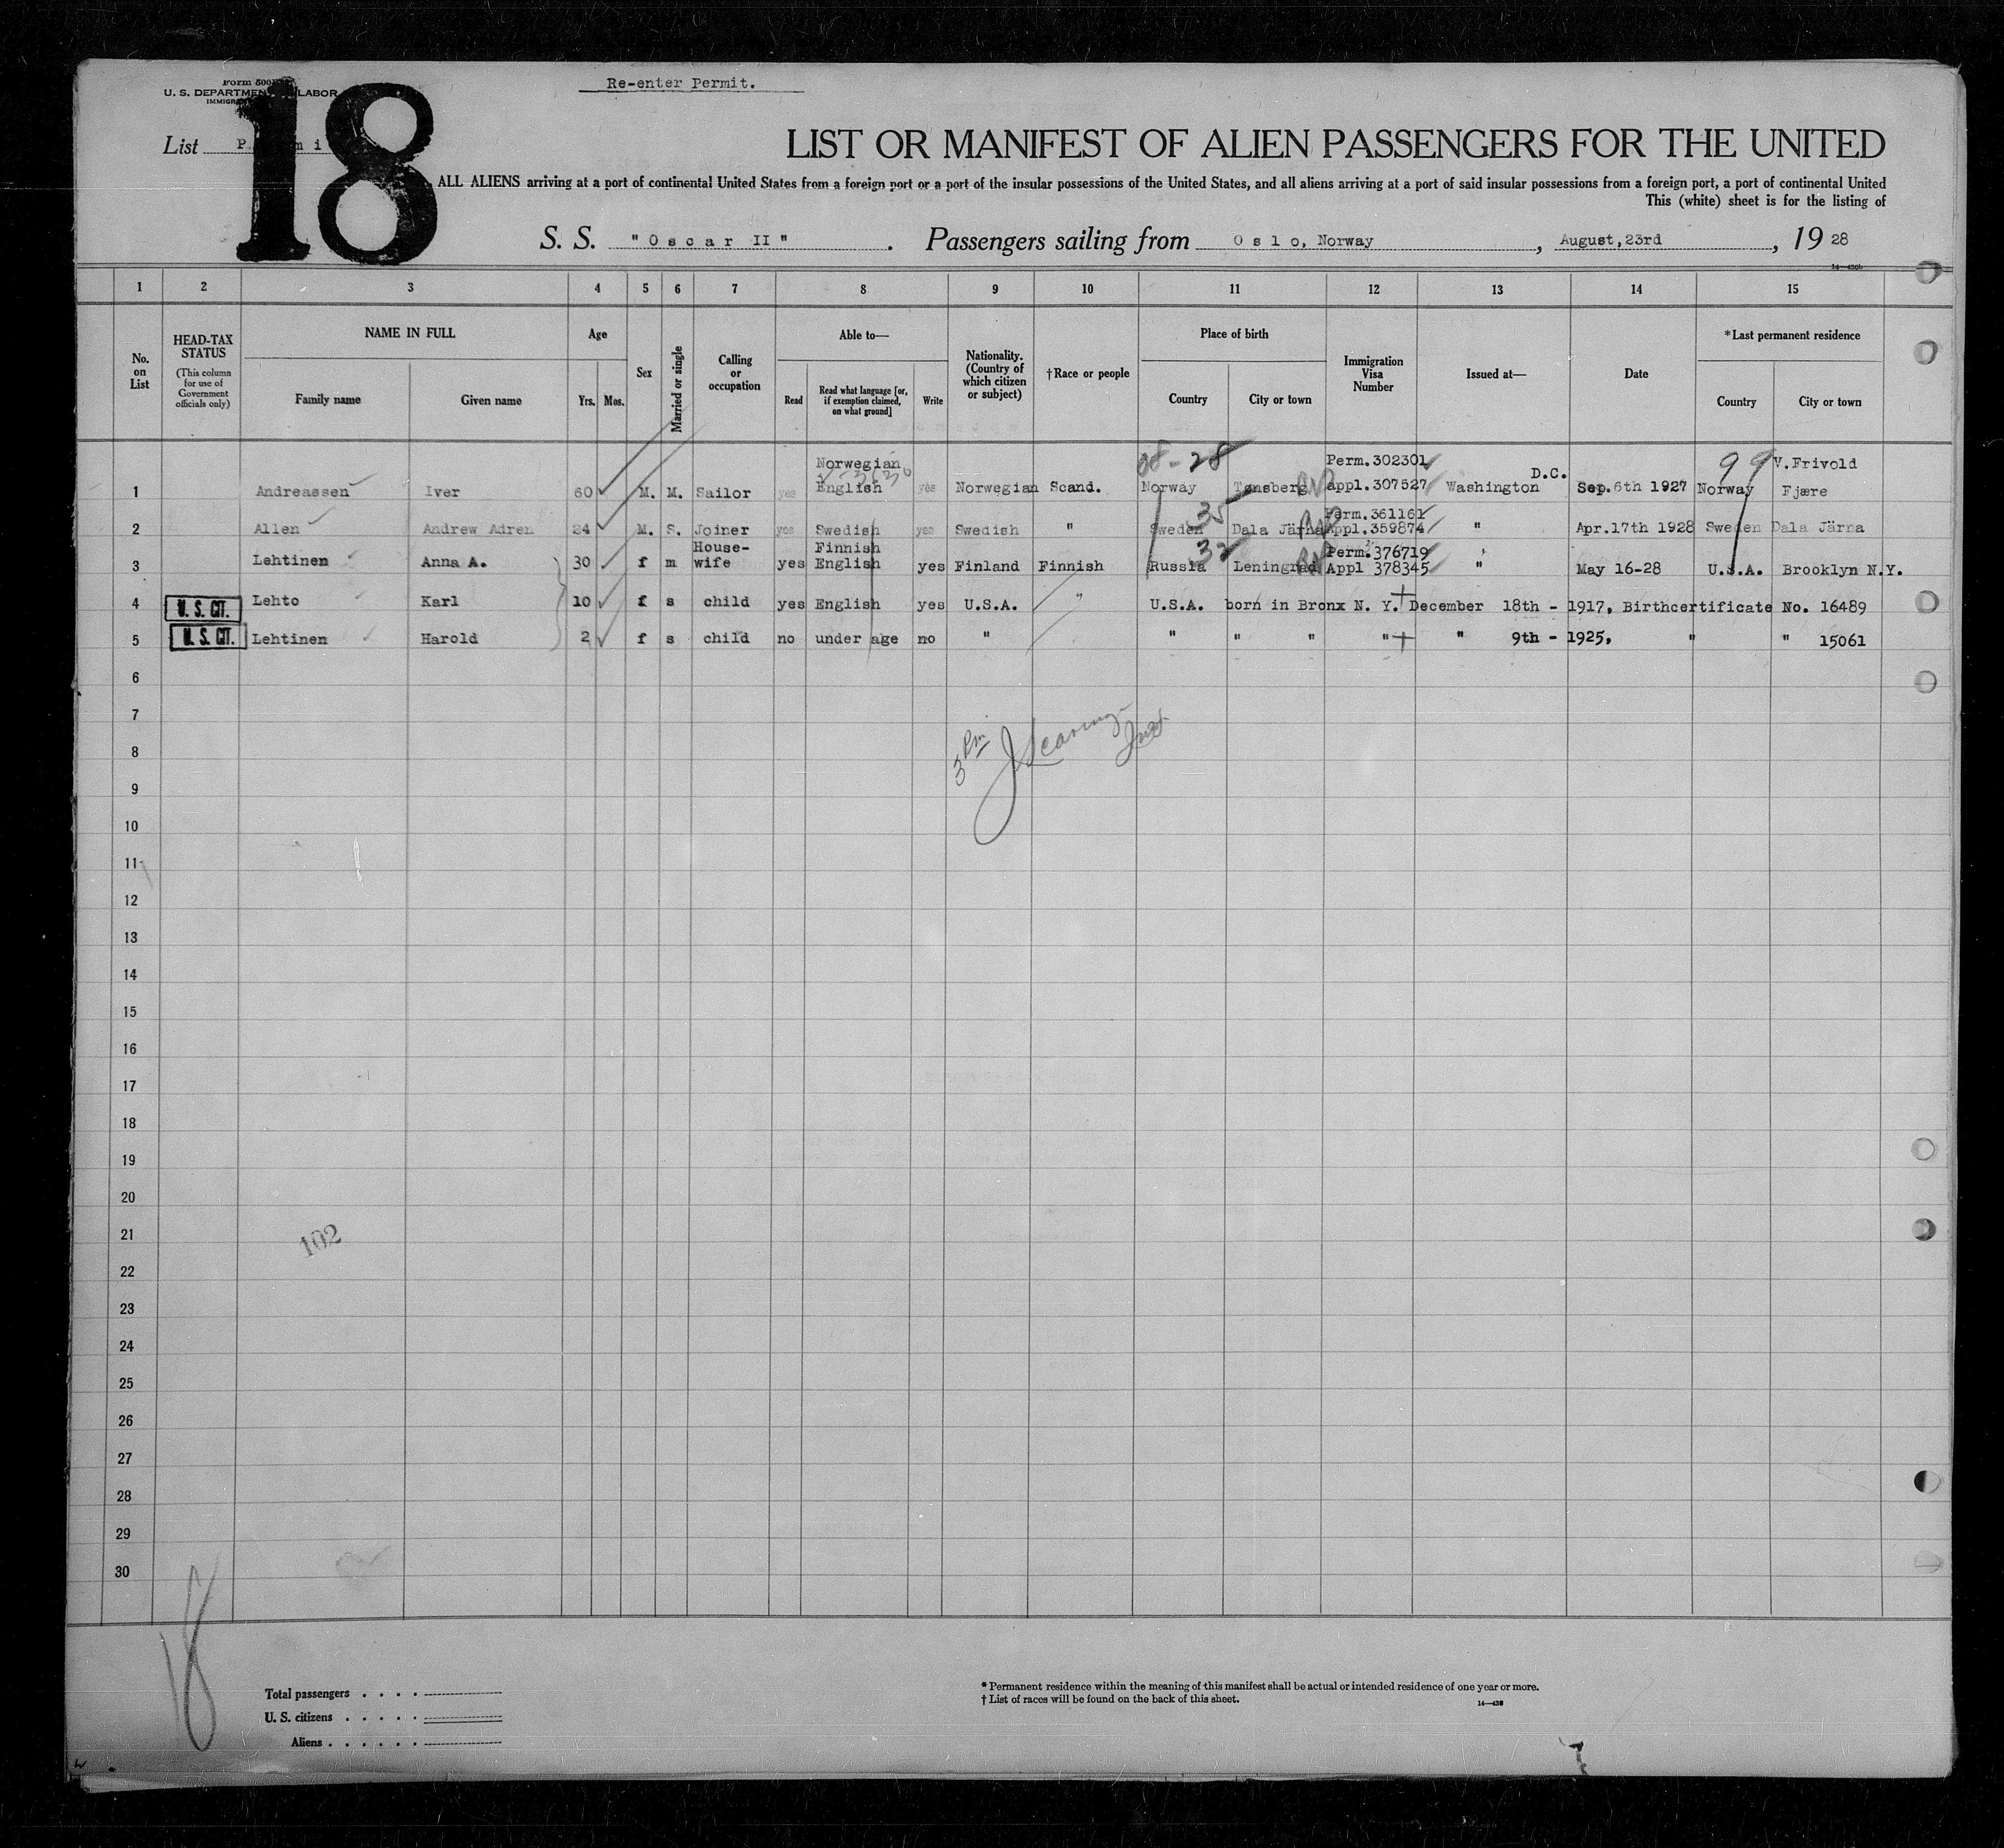 Form 500
U. S. DEPARTMENT LABOR
Re-enter Permit.
18
List
LIST OR MANIFEST OF ALIEN PASSENGERS FOR THE UNITED
ALL ALIENS arriving at a port of continental United States from a foreign port or a port of the insular possessions of the United States, and all aliens arriving at a port of said insular possessions from a foreign port, a port of continental United
This (white) sheet is for the listing of
S. S. "Oscar II" . Passengers sailing from Oslo, Norway , August, 23rd , 19 28
1 2 3 4 5 6 7 8 9 10 11 12 13 14 15
No. on List
HEAD-TAX STATUS
(This column for use of Government officials only)
NAME IN FULL
Family name Given name
Age
Yrs. Mos.
Sex
Married or single
Calling or occupation
Able to—
Read
Read what language [or, if exemption claimed, on what ground]
Write
Nationality. (Country of which citizen or subject)
†Race or people
Place of birth
Country City or town
Immigration Visa Number
Issued at—
Date
*Last permanent residence
Country City or town
08-28 99
Norwegian Perm.302301 D.C. V.Frivold
1 Andreassen Iver 60 M. M. Sailor yes English yes Norwegian Scand. Norway Tønsberg appl.307527 Washington Sep.6th 1927 Norway Fjære
35 Perm.361161
2 Allen Andrew Adren 24 M. S. Joiner yes Swedish yes Swedish " Sweden Dala Järna Appl.359874 " Apr.17th 1928 Sweden Dala Järna
House- Finnish 32 Perm.376719
3 Lehtinen Anna A. 30 f m wife yes English yes Finland Finnish Russia Leningrad Appl 378345 " May 16-28 U.S.A. Brooklyn N.Y.
4 U. S. CIT. Lehto Karl 10 f s child yes English yes U.S.A. " U.S.A. born in Bronx N. Y. December 18th - 1917, Birthcertificate No. 16489
5 U. S. CIT. Lehtinen Harold 2 f s child no under age no " " " " " " 9th - 1925, " " 15061
6
7
8
9
10
11
12
13
14
15
16
17
18
19
20
21
22
23
24
25
26
27
28
29
30
3 Pm
102
18
Total passengers . . . .
U. S. citizens . . . . .
Aliens . . . . . .
* Permanent residence within the meaning of this manifest shall be actual or intended residence of one year or more.
† List of races will be found on the back of this sheet.